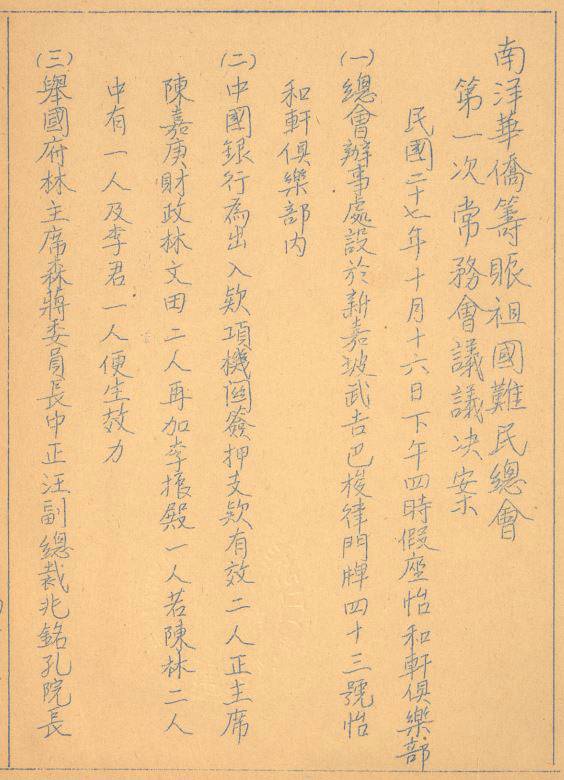 南洋華僑籌賑祖國難民總會
第一次常務會議議决案
民國二十七年十月十六日下午四時假座怡和軒俱樂部
(一)總會辦事處設於新嘉坡武吉巴梭律門牌四十三號怡
和軒俱樂部內
(二)中國銀行為出入欵項機関簽押支欵有效二人正主席
陳嘉庚財政林文田二人再加李振殿一人若陳林二人
中有一人及李君一人便生效力
(三)舉國府林主席森蔣委員長中正汪副總裁兆銘孔院長